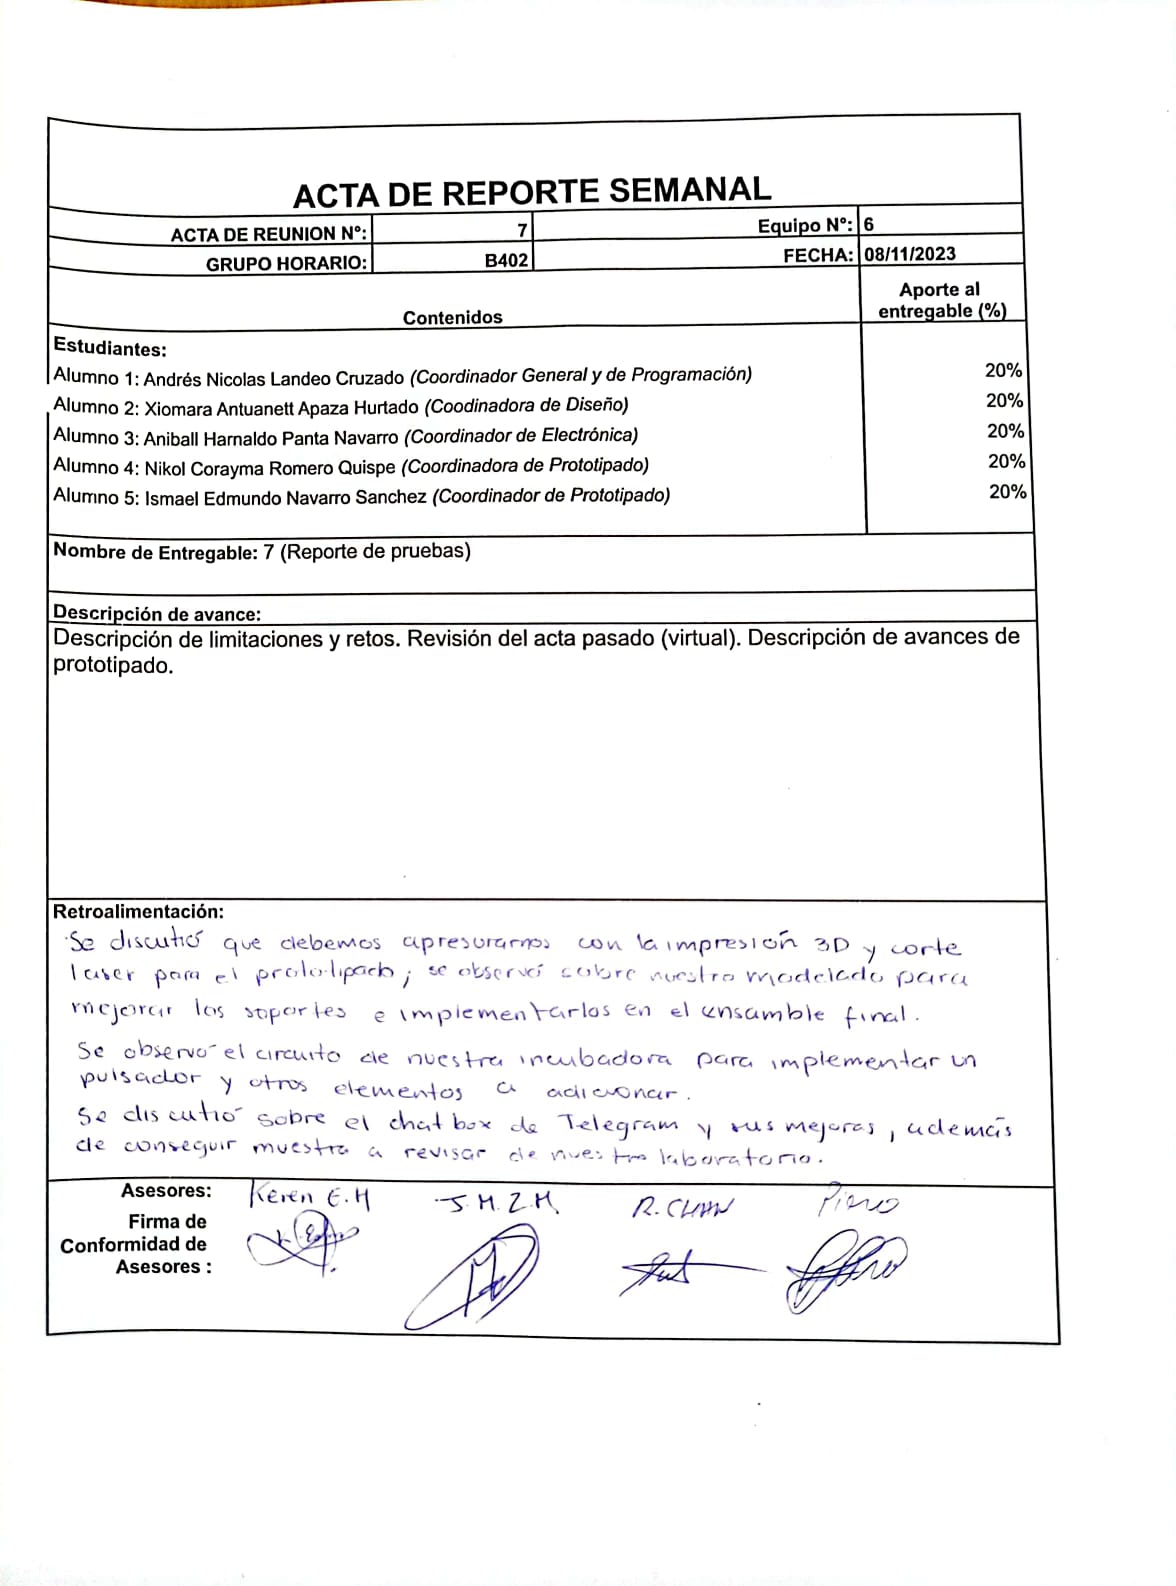 ACTA DE REPORTE SEMANAL
ACTA DE REUNION Nº: 7 Equipo Nº: 6
GRUPO HORARIO: B402 FECHA: 08/11/2023
Contenidos Aporte al entregable (%)
Estudiantes:
Alumno 1: Andrés Nicolas Landeo Cruzado (Coordinador General y de Programación) 20%
Alumno 2: Xiomara Antuanett Apaza Hurtado (Coodinadora de Diseño) 20%
Alumno 3: Aniball Harnaldo Panta Navarro (Coordinador de Electrónica) 20%
Alumno 4: Nikol Corayma Romero Quispe (Coordinadora de Prototipado) 20%
Alumno 5: Ismael Edmundo Navarro Sanchez (Coordinador de Prototipado) 20%
Nombre de Entregable: 7 (Reporte de pruebas)
Descripción de avance:
Descripción de limitaciones y retos. Revisión del acta pasado (virtual). Descripción de avances de
prototipado.
Retroalimentación:
·Se discutió que debemos apresurarnos con la impresión 3D y corte
laser para el prototipado; se observó sobre nuestro modelado para
mejorar los soportes e implementarlos en el ensamble final.
Se observó el circuito de nuestra incubadora para implementar un
pulsador y otros elementos a adicionar.
Se discutió sobre el chatbox de Telegram y sus mejoras, además
de conseguir muestra a revisar de nuestro laboratorio.
Asesores: Keren E.H J.M.Z.M. R. CHAN Piero
Firma de
Conformidad de
Asesores :